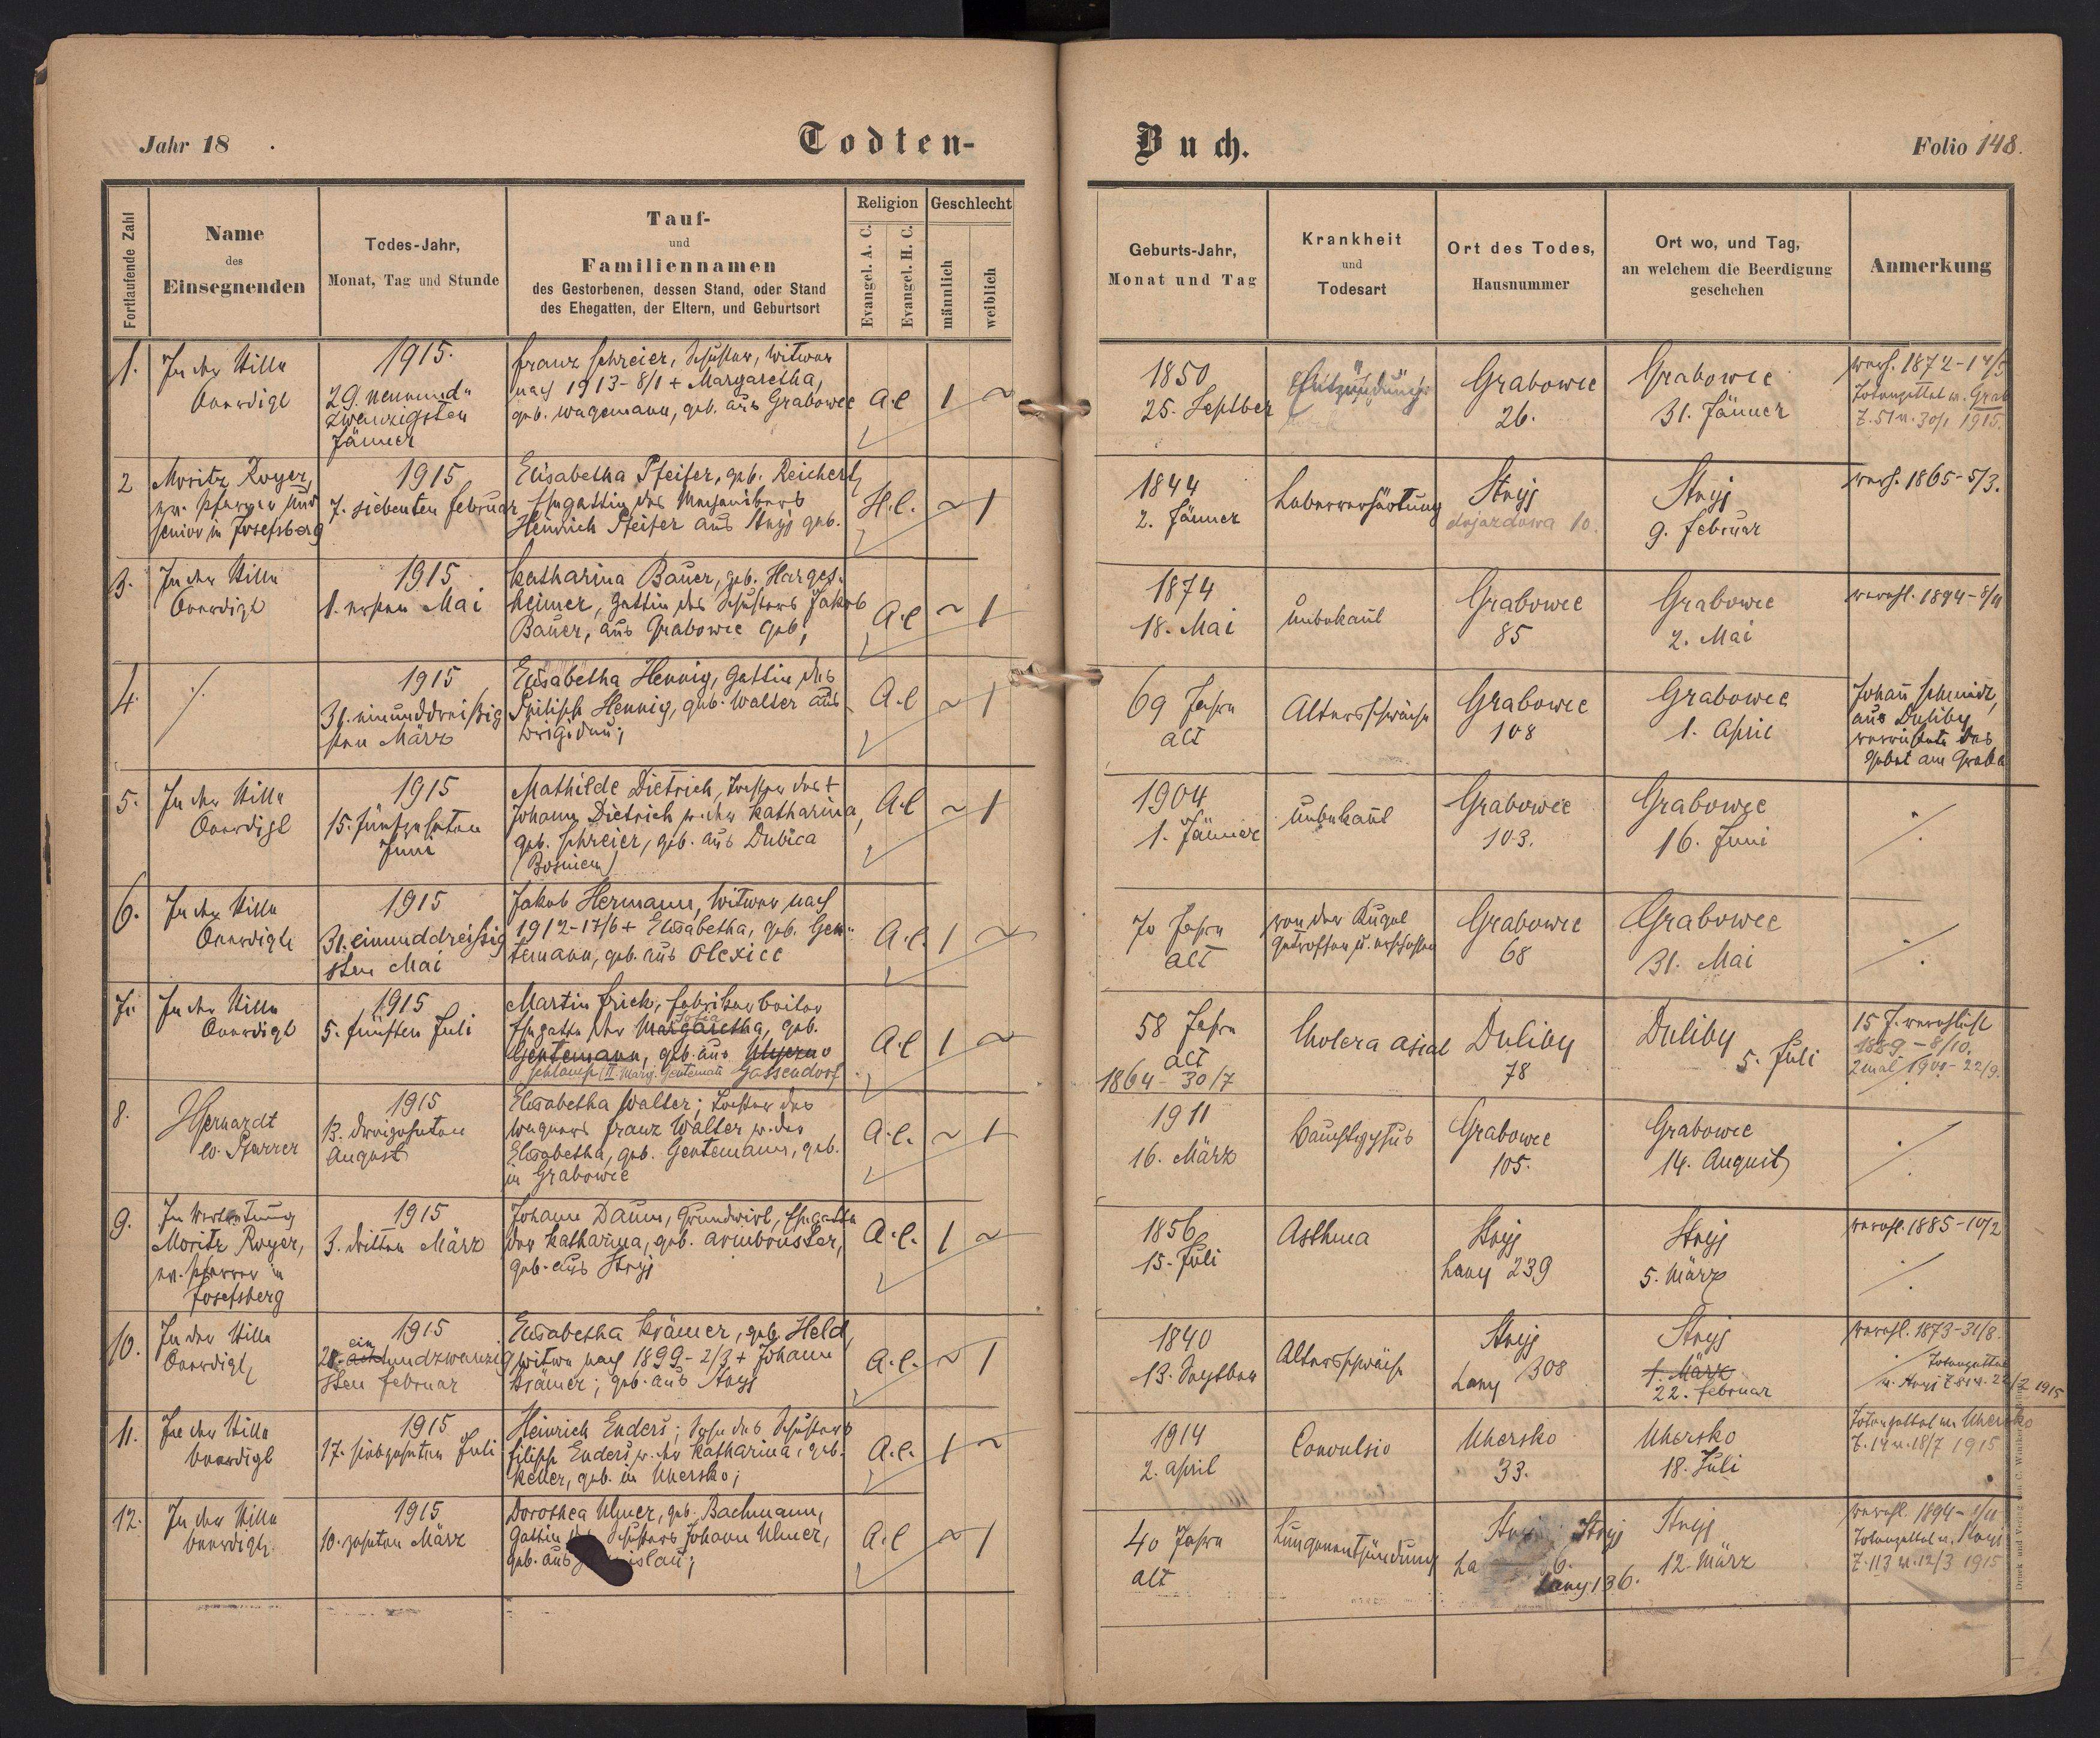 Jahr 18 .
Todten-
Buch.
Folio 148.
Fortlaufende Zahl
Name
des
Einsegnenden
Todes-Jahr,
Monat, Tag und Stunde
Tauf-
und
Familiennamen
des Gestorbenen, dessen Stand, oder Stand
des Ehegatten, der Eltern, und Geburtsort
Religion
Evangel. A. C.
Evangel. H. C.
Geschlecht
männlich
weiblich
Geburts-Jahr,
Monat und Tag
Krankheit
und
Todesart
Ort des Todes,
Hausnummer
Ort wo, und Tag,
an welchem die Beerdigung
geschehen
Anmerkung
1.
In der Stille
beerdigt
1915.
29. neunund-
zwanzigsten
Jänner
Franz Schreier, Schuster, Witwer
nach 1913-8/1 + Margaretha,
geb. Wagemann, geb. aus Grabowce
A.C
1
~
1850
25. Septber
Grabowce
26.
Grabowce
31. Jänner
vereh. 1872-14/5
Totenzettel v. Grab
Z. 51 v. 30/1 1915.
2
Moritz Royer,
ev. Pfarrer und
Senior in Josefsberg
1915
7. siebenten Februar
Elisabetha Pfeifer, geb. Reichert,
Ehegattin des
Heinrich Pfeifer aus Stryj geb.
H.C.
~
1
1844
2. Jänner
Leberverhärtung
Stryj
dojazdowa 10.
Stryj
9. Februar
vereh. 1865-5/3.
3.
In der Stille
beerdigt
1915
1. ersten Mai
Katharina Bauer, geb. Harges-
heimer, Gattin des Schusters Jakob
Bauer, aus Grabowce geb;
A.C
~
1
1874
18. Mai
unbekant
Grabowce
85
Grabowce
2. Mai
verehl. 1894-8/11
4.
./.
1915
31. einunddreißig
sten März
Elisabetha Hennig, Gattin des
Philipp Hennig, geb. Walter aus
Brigidau;
A.C
~
1
69 Jahre
alt
Altersschwäche
Grabowce
108
Grabowce
1. April
Johan Schmidt,
aus Duliby
verrichtete das
Gebet am Grabe
5.
In der Stille
beerdigt
1915
15. fünfzehnten
Juni
Mathilde Dietrich, Tochter des +
Johann Dietrich u. der Katharina,
geb. Schreier, geb. aus Dubica
(Bosnien)
A.C
~
1
1904
1. Jänner
unbekant
Grabowce
103.
Grabowce
16. Juni
./.
6.
In der Stille
beerdigt
1915
31. einunddreißig
sten Mai
Jakob Hermann, Witwer nach
1912-17/6 + Elisabetha, geb. Gen-
temann, geb. aus Olexice
A.C.
1
~
70 Jahre
alt
von der Kugel
getroffen u. erschossen
Grabowce
68
Grabowce
31. Mai
./.
7.
In der Stille
beerdigt
1915
5. fünften Juli
Martin Frick, Fabriksarbeiter
Sofia
Ehegatte der Margaretha, geb.
Gentemann, geb. aus Ugerno
Schlamp (II. Marg. Gentemann Gassendorf.
A.C
1
~
58 Jahre
alt
1864-30/7
Cholera asiat
Duliby
78
Duliby
5. Juli
15 J. verehlicht
1889-8/10.
2 mal 1900-22/9.
8.
Gerhardt
ev. Pfarrer
1915
13. dreizehnten
August
Elisabetha Walter; Tochter des
Wagners Franz Walter u. der
Elisabetha, geb. Gentemann, geb.
in Grabowce
A.C.
~
1
1911
16. März
Bauchtyphus
Grabowce
105.
Grabowce
14. August
./.
9.
In Vertretung
Moritz Royer,
ev. Pfarrer in
Josefsberg
1915
3. dritten März
Johann Daum, Grundwirt, Ehegatte
der Katharina, geb. Armbruster,
geb. aus Stryj
A.C.
1
~
1856
15. Juli
Asthma
Stryj
Lany 239
Stryj
5. März
verehl. 1885-10/2
./.
10.
In der Stille
beerdigt
1915
ein
21. achtundzwanzig
sten Februar
Elisabetha Krämer, geb. Held,
Witwe nach 1899-2/3 + Johann
Krämer; geb. aus Stryj
A.C.
~
1
1840
13. Septber
Altersschwäche
Stryj
Lany 308
Stryj
1. März
22. Februar
verehl. 1873-31/8.
Totenzettel
v. Stryj Z 81 v. 22/2 1915
11.
In der Stille
beerdigt
1915
17. siebzehnten Juli
Heinrich Enders; Sohn des Schusters
Filipp Enders u. der Katharina, geb.
Keller, geb. in Uhersko;
A.C.
1
~
1914
2. April
Convulsio
Uhersko
33.
Uhersko
18. Juli
Totenzettel von Uhersko
Z. 14 v. 18/7 1915
12.
In der Stille
beerdigt
1915
10. zehnten März
Dorothea Ulmer, geb. Bachmann,
Gattin des Schusters Johann Ulmer,
geb. aus
A.C
~
1
40 Jahre
alt
Lungenentzündung
Stryj
Lany 136.
Stryj
12. März
verehl. 1894-
Totenzettel v. Stryj
Z. 113 v. 12/3 1915